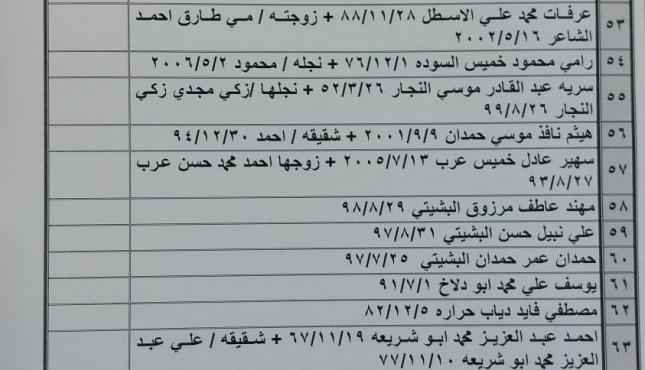 ٥٣ عرفات محمد علي الاسطل ٨٨/١١/٢٨ + زوجته / مي طارق احمد
الشاعر ٢٠٠٢/٥/١٦
٥٤ رامي محمود خميس السوده ٧٦/١٢/١ + نجله / محمود ٢٠٠٦/٥/٢
٥٥ سريه عبد القادر موسي النجار ٥٢/٣/٢٦ + نجلها /زكي مجدي زكي
النجار ٩٩/٨/٢٦
٥٦ هيثم نافذ موسي حمدان ٢٠٠١/٩/٩ + شقيقه / احمد ٩٤/١٢/٣٠
٥٧ سهير عادل خميس عرب ٢٠٠٥/٧/١٣ + زوجها احمد محمد حسن عرب
٩٣/٨/٢٧
٥٨ مهند عاطف مرزوق البشيتي ٩٨/٨/٢٩
٥٩ علي نبيل حسن البشيتي ٩٧/٨/٣١
٦٠ حمدان عمر حمدان البشيتي ٩٧/٧/٢٥
٦١ يوسف علي محمد ابو دلاخ ٩١/٧/١
٦٢ مصطفي فايد دياب حراره ٨٢/١٢/٥
٦٣ احمد عبد العزيز محمد ابو شريعه ٦٧/١١/١٩ + شقيقه / علي عبد
العزيز محمد ابو شريعه ٧٧/١١/١٠